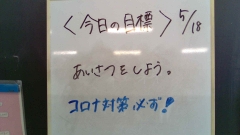 〈今日の目標〉 5/18
あいさつをしよう。
コロナ対策必ず!